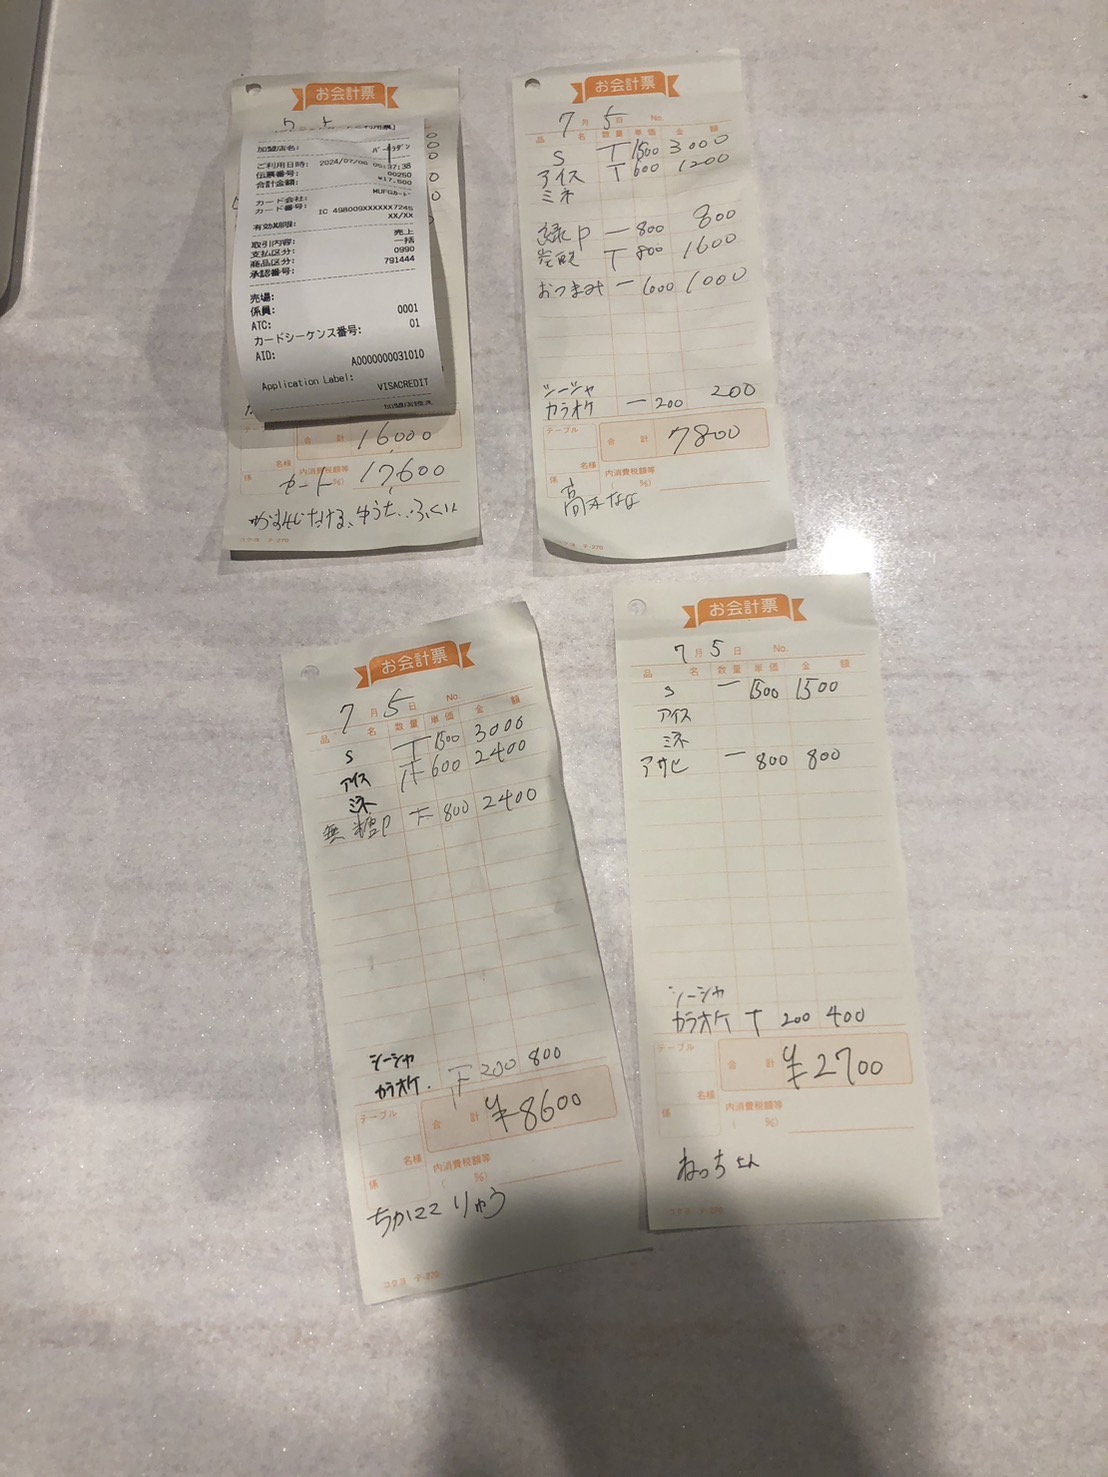 お会計票
加盟店名:
ご利用日時: 2024/07/06 05:37:38
伝票番号: 00250
合計金額: ¥17,600
カード会社: MUFGカード
カード番号: IC 498009XXXXXX7245
有効期限: XX/XX
取引内容: 売上
支払区分: 一括
商品区分: 0990
承認番号: 791444
売場:
係員:
ATC: 0001
カードシーケンス番号: 01
AID: A0000000031010
Application Label: VISACREDIT
合計 16000
名様 内消費税額等
係 カード %) 17,600
コクヨ テ-270
お会計票
7月5日 No.
品名 数量 単価 金額
S T 1500 3000
アイス T 600 1200
ミネ
緑P 一 800 800
T 800 1600
おつまみ 一 1000 1000
シーシャ
カラオケ 一 200 200
テーブル
合計 7800
名様 内消費税額等
係 ( %)
コクヨ テ-270
お会計票
7月5日 No.
品名 数量 単価 金額
S T 1500 3000
アイス 600 2400
ミネ
無糖P 800 2400
シーシャ
カラオケ. 200 800
テーブル
合計 ¥8600
名様 内消費税額等
係 ( %)
ちかここ りゅう
コクヨ テ-270
お会計票
7月5日 No.
品名 数量 単価 金額
S 一 1500 1500
アイス
ミネ
アサヒ 一 800 800
シーシャ
カラオケ T 200 400
テーブル
合計 ¥2700
名様 内消費税額等
係 ( %)
ねっちょん
コクヨ テ-270